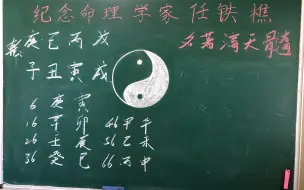 纪念命理学家任铁樵
名著滴天髓
乾 庚 己 丙 戊
子 丑 寅 戌
6 庚 寅
16 辛 卯 46 甲 午
26 壬 辰 56 乙 未
36 癸 巳 66 丙 申